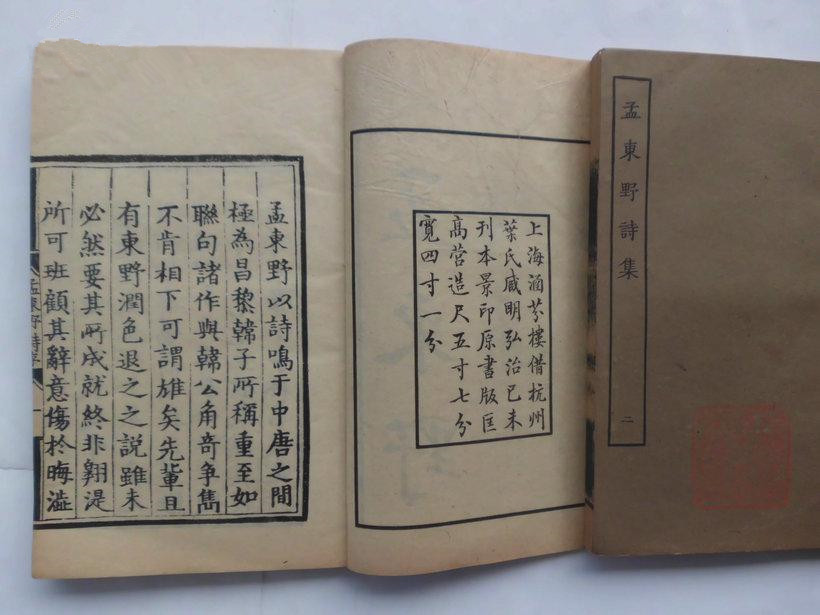 孟東野詩集
二
上海涵芬樓借杭州
葉氏臧明弘治己未
刊本景印原書版匡
高营造尺五寸七分
寬四寸一分
孟東野以詩鳴于中唐之間
極為昌黎韓子所稱重至如
聯句諸作與韓公角奇争雋
不肯相下可謂雄矣先輩且
有東野潤色退之之説雖未
必然要其所成就終非翱湜
所可班顧其辭意傷於晦澁
孟東野詩序
一